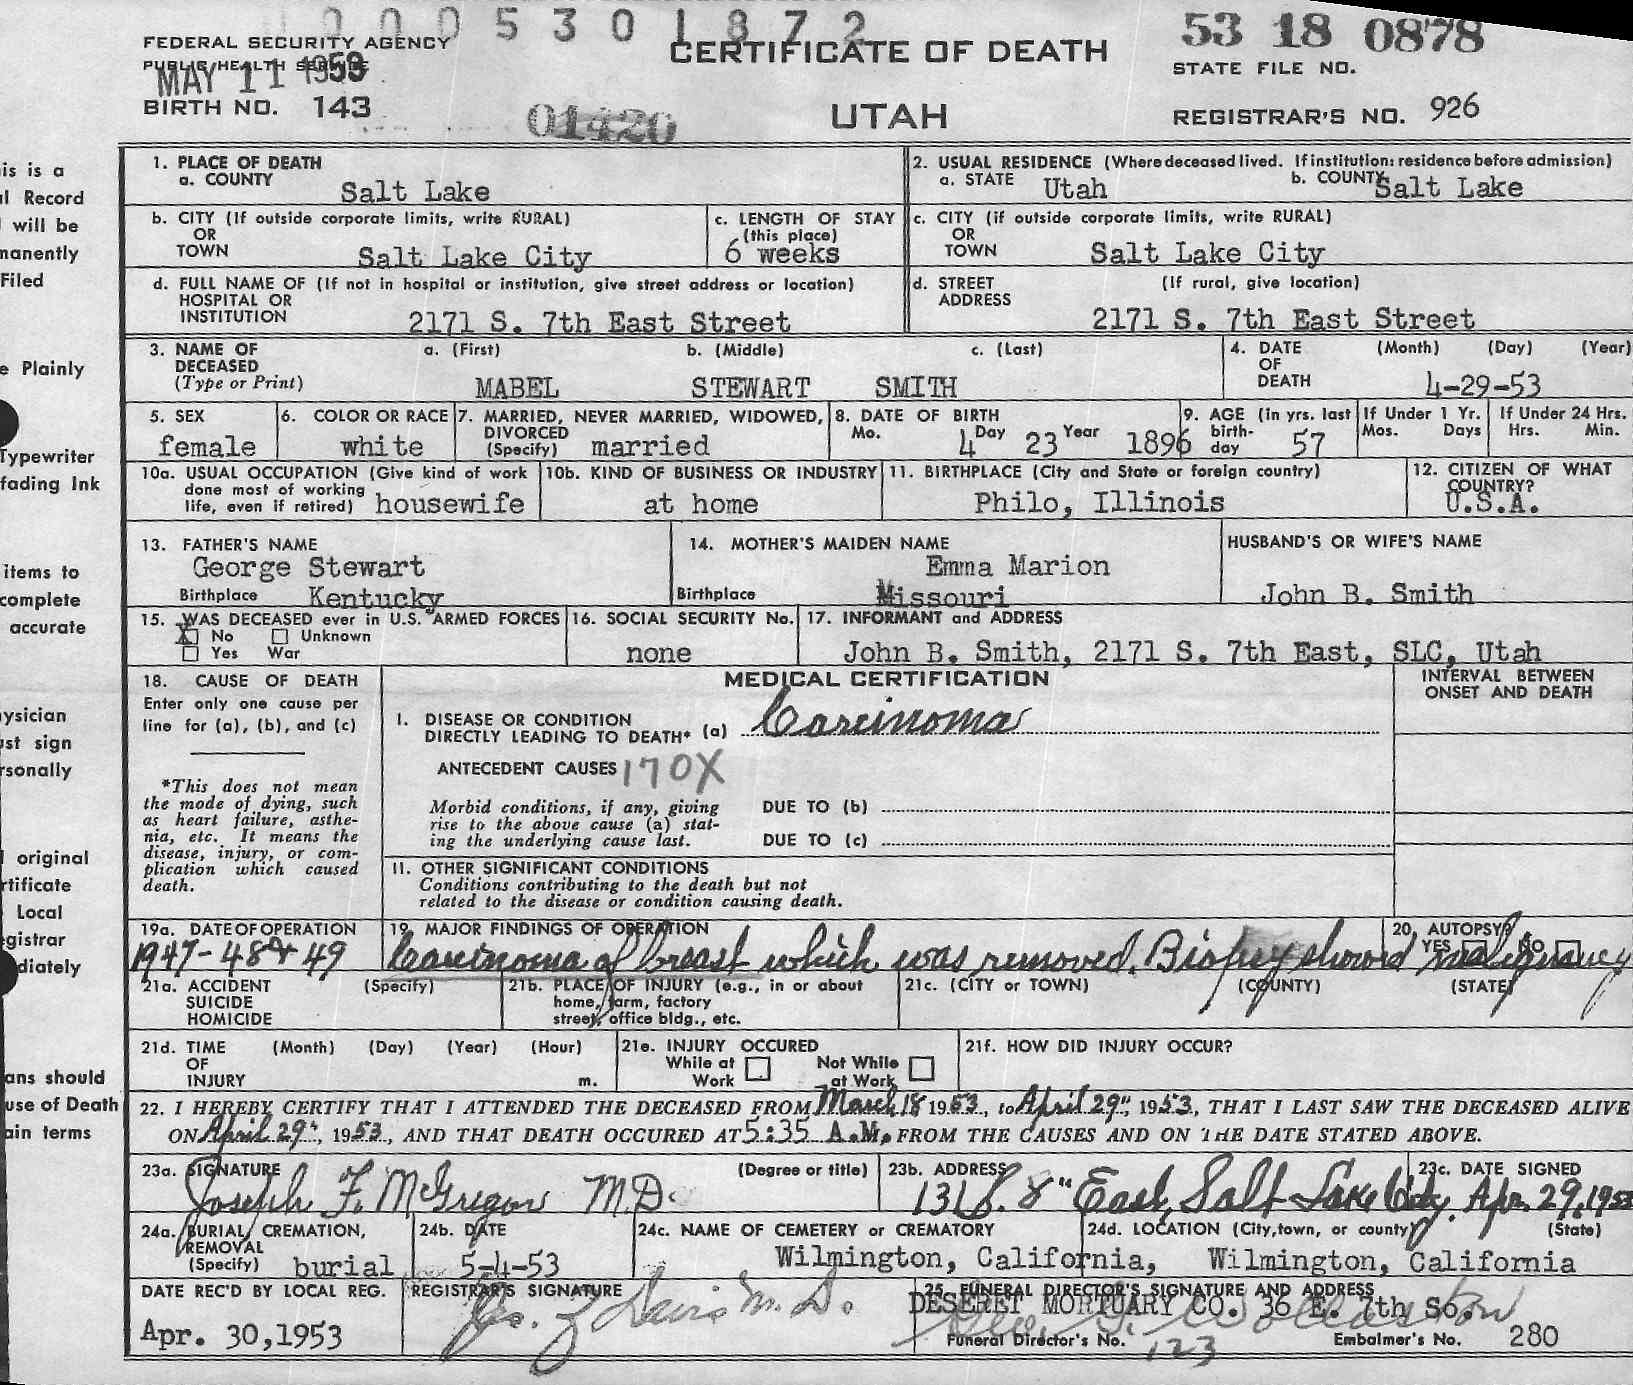 0005301872
53 18 0878
FEDERAL SECURITY AGENCY
CERTIFICATE OF DEATH
PUBLIC HEALTH SERVICE
STATE FILE NO.
MAY 11 1953
BIRTH NO. 143
01420
UTAH
REGISTRAR'S NO. 926
1. PLACE OF DEATH
a. COUNTY Salt Lake
2. USUAL RESIDENCE (Where deceased lived. If institution: residence before admission)
a. STATE Utah b. COUNTY Salt Lake
b. CITY (If outside corporate limits, write RURAL)
OR
TOWN Salt Lake City
c. LENGTH OF STAY
(this place)
6 weeks
c. CITY (if outside corporate limits, write RURAL)
OR
TOWN Salt Lake City
d. FULL NAME OF (If not in hospital or institution, give street address or location)
HOSPITAL OR
INSTITUTION 2171 S. 7th East Street
d. STREET (If rural, give location)
ADDRESS
2171 S. 7th East Street
3. NAME OF
DECEASED
(Type or Print)
a. (First) b. (Middle) c. (Last)
MABEL STEWART SMITH
4. DATE (Month) (Day) (Year)
OF
DEATH 4-29-53
5. SEX
female
6. COLOR OR RACE
white
7. MARRIED, NEVER MARRIED, WIDOWED,
DIVORCED
(Specify) married
8. DATE OF BIRTH
Mo. 4 Day 23 Year 1896
9. AGE (in yrs. last
birth-
day 57
If Under 1 Yr.
Mos. Days
If Under 24 Hrs.
Hrs. Min.
10a. USUAL OCCUPATION (Give kind of work
done most of working
life, even if retired) housewife
10b. KIND OF BUSINESS OR INDUSTRY
at home
11. BIRTHPLACE (City and State or foreign country)
Philo, Illinois
12. CITIZEN OF WHAT
COUNTRY?
U.S.A.
13. FATHER'S NAME
George Stewart
Birthplace Kentucky
14. MOTHER'S MAIDEN NAME
Emma Marion
Birthplace Missouri
HUSBAND'S OR WIFE'S NAME
John B. Smith
15. WAS DECEASED ever in U.S. ARMED FORCES
X No Unknown
Yes War
16. SOCIAL SECURITY No.
none
17. INFORMANT and ADDRESS
John B. Smith, 2171 S. 7th East, SLC, Utah
18. CAUSE OF DEATH
Enter only one cause per
line for (a), (b), and (c)
*This does not mean
the mode of dying, such
as heart failure, asthe-
nia, etc. It means the
disease, injury, or com-
plication which caused
death.
MEDICAL CERTIFICATION
INTERVAL BETWEEN
ONSET AND DEATH
I. DISEASE OR CONDITION
DIRECTLY LEADING TO DEATH* (a) Carcinoma
ANTECEDENT CAUSES 170X
Morbid conditions, if any, giving
rise to the above cause (a) stat-
ing the underlying cause last.
DUE TO (b)
DUE TO (c)
11. OTHER SIGNIFICANT CONDITIONS
Conditions contributing to the death but not
related to the disease or condition causing death.
19a. DATE OF OPERATION
1947-48+49
19. MAJOR FINDINGS OF OPERATION
Carcinoma of breast which was removed. Biopsy showed malignancy
20. AUTOPSY?
YES NO
21a. ACCIDENT (Specify)
SUICIDE
HOMICIDE
21b. PLACE OF INJURY (e.g., in or about
home, farm, factory
street, office bldg., etc.
21c. (CITY or TOWN) (COUNTY) (STATE)
21d. TIME (Month) (Day) (Year) (Hour)
OF
INJURY m.
21e. INJURY OCCURED
While at Work
Not While at Work
21f. HOW DID INJURY OCCUR?
22. I HEREBY CERTIFY THAT I ATTENDED THE DECEASED FROM March 18 1953, to April 29", 1953, THAT I LAST SAW THE DECEASED ALIVE
ON April 29", 1953, AND THAT DEATH OCCURED AT 5:35 A.M. FROM THE CAUSES AND ON THE DATE STATED ABOVE.
23a. SIGNATURE (Degree or title)
Joseph F. McGregor M.D.
23b. ADDRESS
1316. 8" East, Salt Lake City.
23c. DATE SIGNED
Apr. 29, 1953
24a. BURIAL, CREMATION,
REMOVAL
(Specify) burial
24b. DATE
5-4-53
24c. NAME OF CEMETERY or CREMATORY
Wilmington, California,
24d. LOCATION (City, town, or county) (State)
Wilmington, California
DATE REC'D BY LOCAL REG.
Apr. 30, 1953
REGISTRAR'S SIGNATURE
Davis M.D.
25. FUNERAL DIRECTOR'S SIGNATURE AND ADDRESS
DESERET MORTUARY CO. 36 E. 7th So.
Funeral Director's No. 123
Embalmer's No. 280
is is a
l Record
will be
manently
Filed
e Plainly
Typewriter
fading Ink
items to
complete
accurate
ysician
st sign
rsonally
original
rtificate
Local
egistrar
diately
ans should
use of Death
ain terms